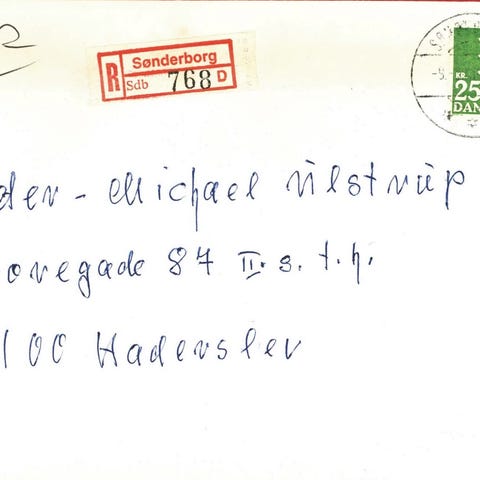 Sønderborg
R Sdb 768 D
KR.
25
DAN
der - Michael Ülstrüp
ovegade 87 II. s. t. h.
100 Haderslev